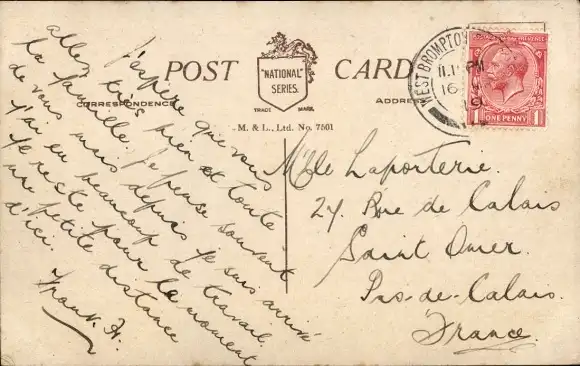 POST CARD
"NATIONAL"
SERIES.
TRADE MARK.
CORRESPONDENCE
ADDRESS
M. & L., Ltd. No. 7501
WEST BROMPTON
11.1 PM
16
19
POSTAGE REVENUE
1 ONE PENNY 1
J'espère que vous
allez très bien et toute
la famille. Je pense souvent
de vous mais depuis je suis arrivé
j'ai eu beaucoup de travail.
Je reste pour le moment
une petite distance
d'ici.
Frank. H.
Mlle Laporterie.
24. Rue de Calais
Saint Omer.
Pas-de-Calais.
France.